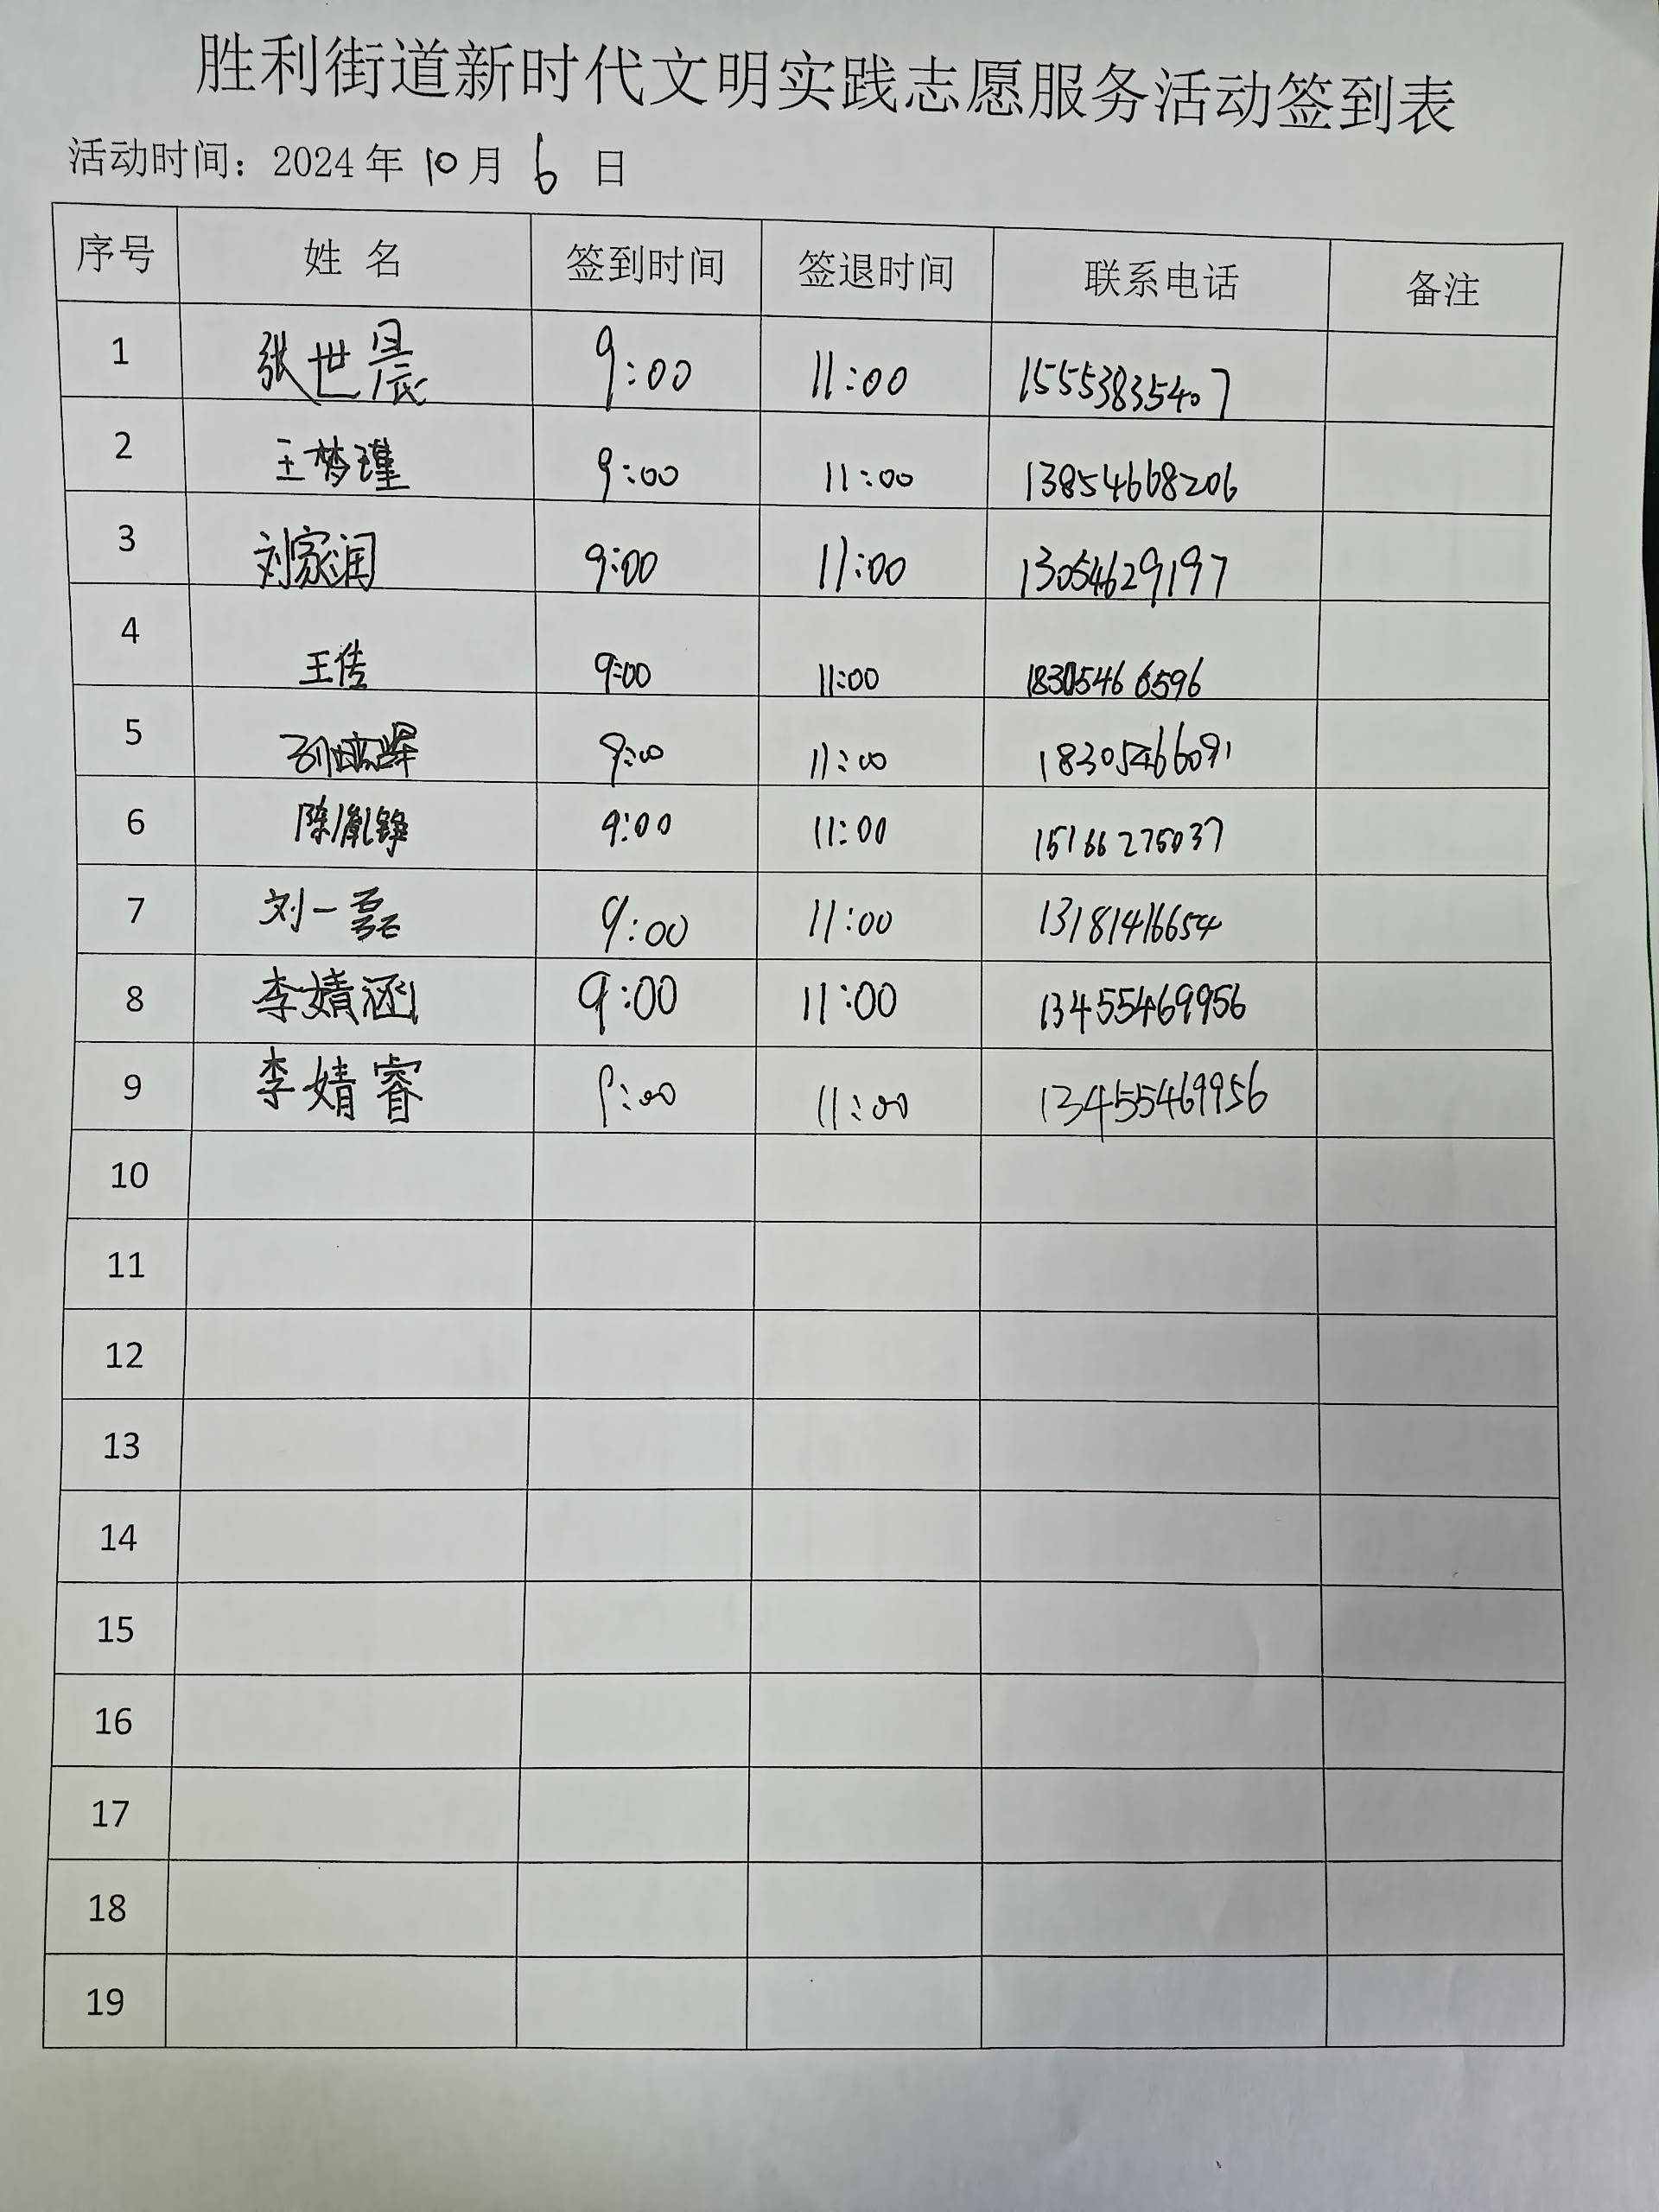 胜利街道新时代文明实践志愿服务活动签到表
活动时间：2024年 10月 6 日
序号 姓 名 签到时间 签退时间 联系电话 备注
1 张世晨 9:00 11:00 15553835407
2 王梦瑾 9:00 11:00 13854668206
3 刘家润 9:00 11:00 13054629197
4 王传 9:00 11:00 18305466596
5 9:00 11:00 18305466091
6 陈胤铮 9:00 11:00 15166275037
7 刘一磊 9:00 11:00 13181416654
8 李婧涵 9:00 11:00 13455469956
9 李婧睿 9:00 11:00 13455469956
10
11
12
13
14
15
16
17
18
19